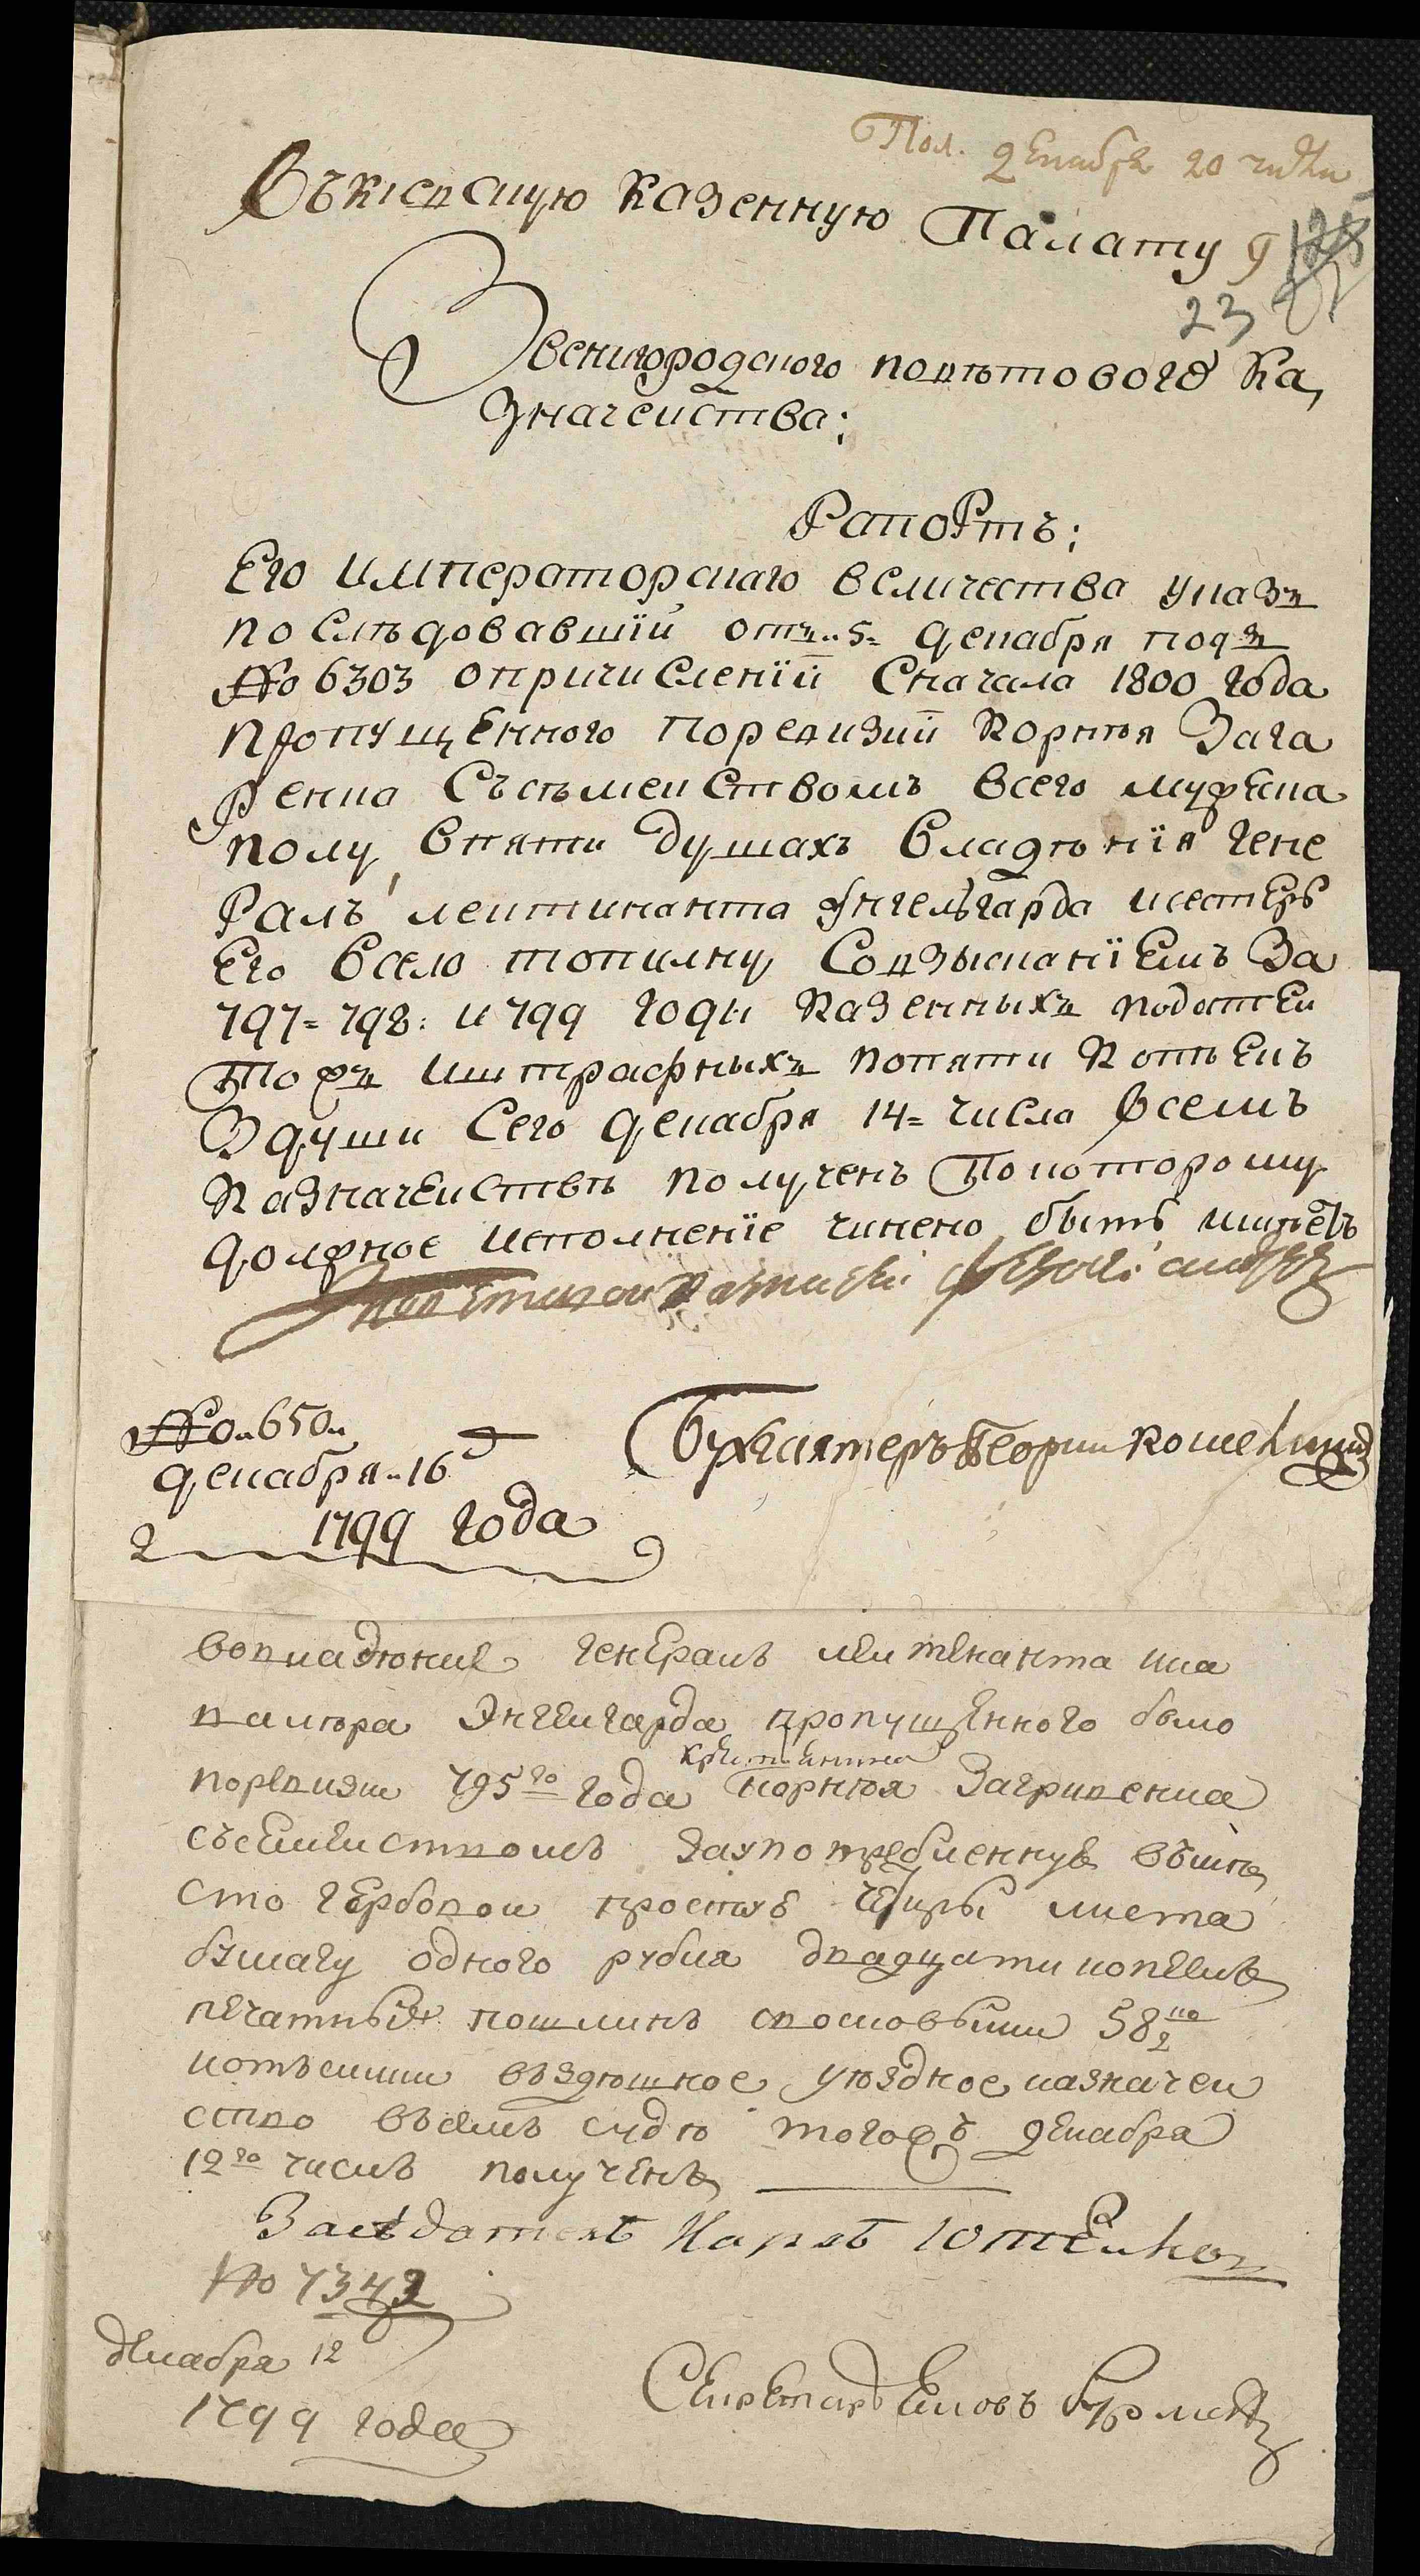 Пол. декабря 20 числа
Въ киевскую казенную Палату
9 128
23
Звенигородского поветового Ка,
значейства;
Рапортъ;
Его императорскаго величества указъ
последовавшїй отъ 5 декабря подъ
№ 6303 опричисленїй Сначала 1800 года
пропущенного поревизїй Корнѣя Зага
Ренка Съсѣмейством всего мужска
полу впяти душахъ владѣнїя гене
Ралъ лейтинанта Енгельгарда
Его вселе топилну Совзысканїемъ За
797= 798: и 799 годы казенныхъ податей
Тожъ иштрафныхъ попяти копѣекъ
Здуши Сего декабря 14= числа Всемъ
казначействѣ полученъ Покоторому
должное исполненїе чинено быть имѣетъ
№ 650
декабря 16
1799 года
Бухгалтеръ Георги
вовладѣние генералъ лейтенанта
Энгелгарда пропущенного было
крестянина
поревизи 795го года корнѣя Загривенка
съсемействомъ заупотребленную вмѣ,
сто гербовой простую четыри листа
бумагу одного рубля двадцати копеекъ
печатныхъ пошлинъ 58 ½
копѣекъ уездное казначей
ство въсемъ судѣ тогожъ декабра
12го числъ полученъ
Заседатель Карлъ
№ 7342
декабра 12
1799 года
Секретарь